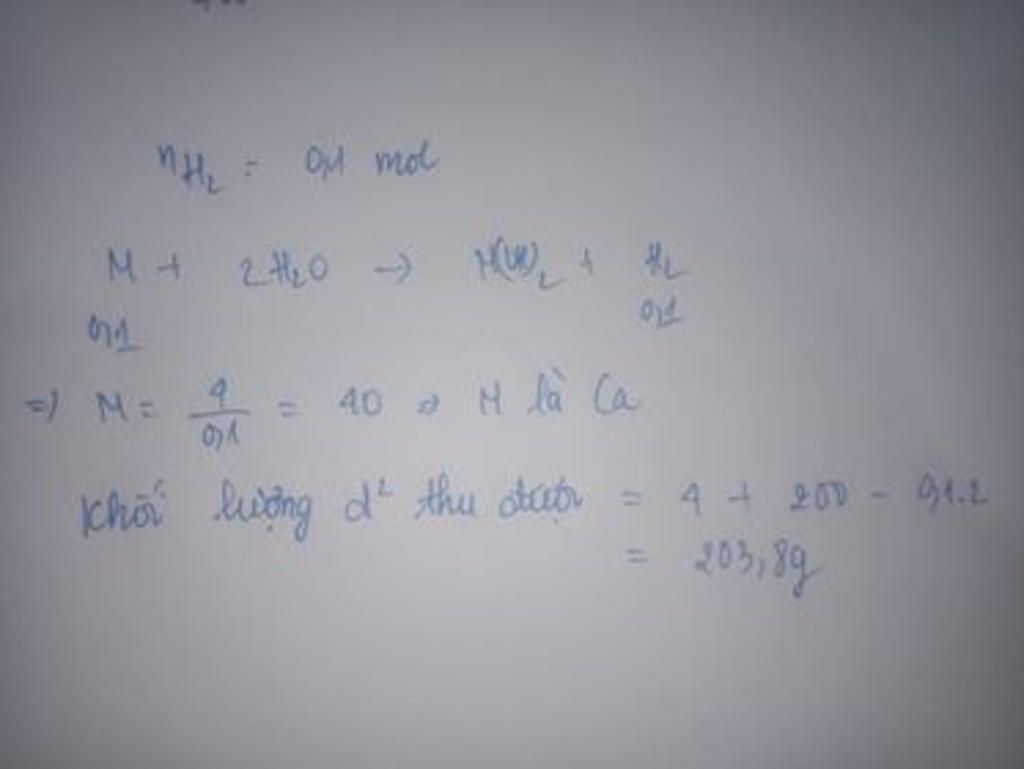 nH₂ = 0,1 mol
M + 2H₂O → M(OH)₂ + H₂
0,1 0,1
=) M = 4/0,1 = 40 => M là Ca
Khối lượng d² thu được = 4 + 200 - 0,1.2
= 203,8g